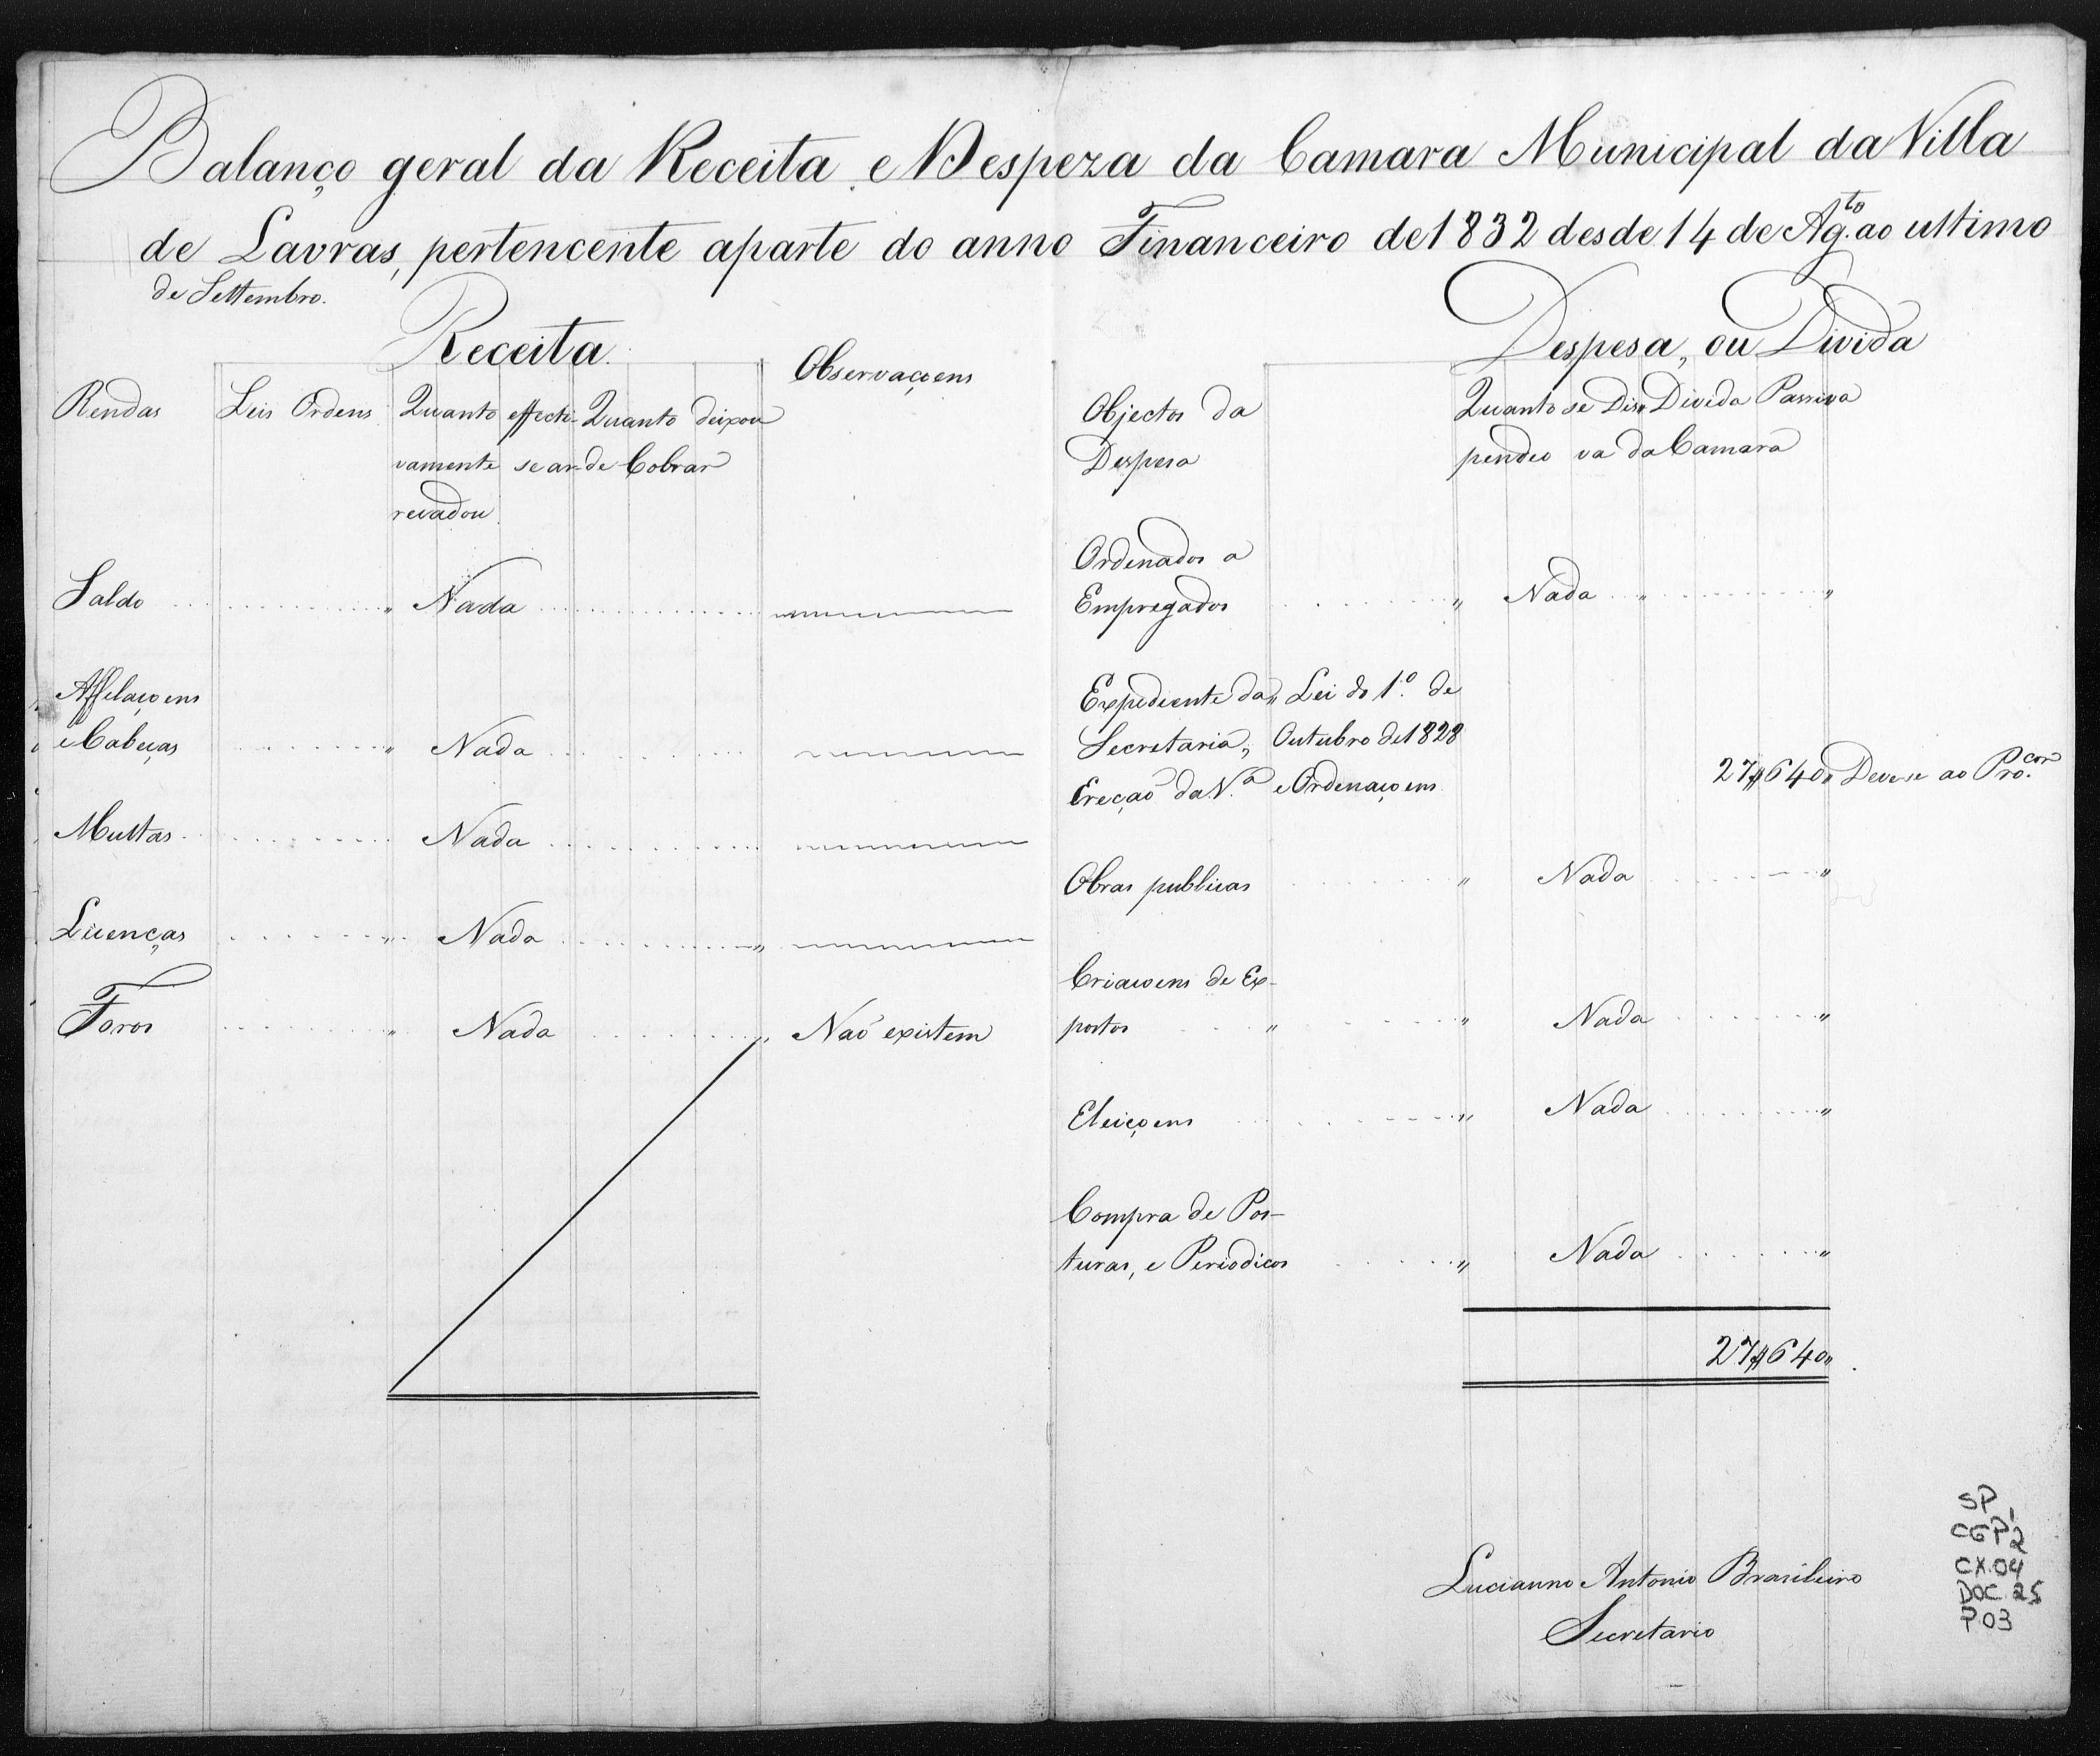 Balanço geral da Receita e Despeza da Camara Municipal da Villa
de Lavras, pertencente aparte do anno Financeiro de 1832 desde 14 de Ag.to ao ultimo
de Settembro.
Receita
Rendas Leis Ordens Quanto effecti- Quanto deixou Observaçoens
vamente se ar- de Cobrar
recadou
Saldo " Nada
Affilaçoens
e Cabeças " Nada
Multas Nada
Licenças " Nada "
Foros " Nada " Naõ existem
Despesa, ou Divida
Objectos da Quanto se Dis" Divida Passi"
Despesa pendeo va da Camara
Ordenados a
Empregados " Nada " "
Expediente da" Lei do 1.º de
Secretaria, Outubro de 1828
Ereçaõ da V.ª e Ordenaçoens 27$640" Deve-se ao Pro.cor
Obras publicas " Nada "
Criaçoens de Ex-
postos " " Nada "
Eleiçoens " Nada "
Compra de Pos-
turas, e Periodicos " Nada "
27$640"
Lucianno Antonio Brasileiro
Secretario
SP
CGP2
CX.04
DOC.25
P.03